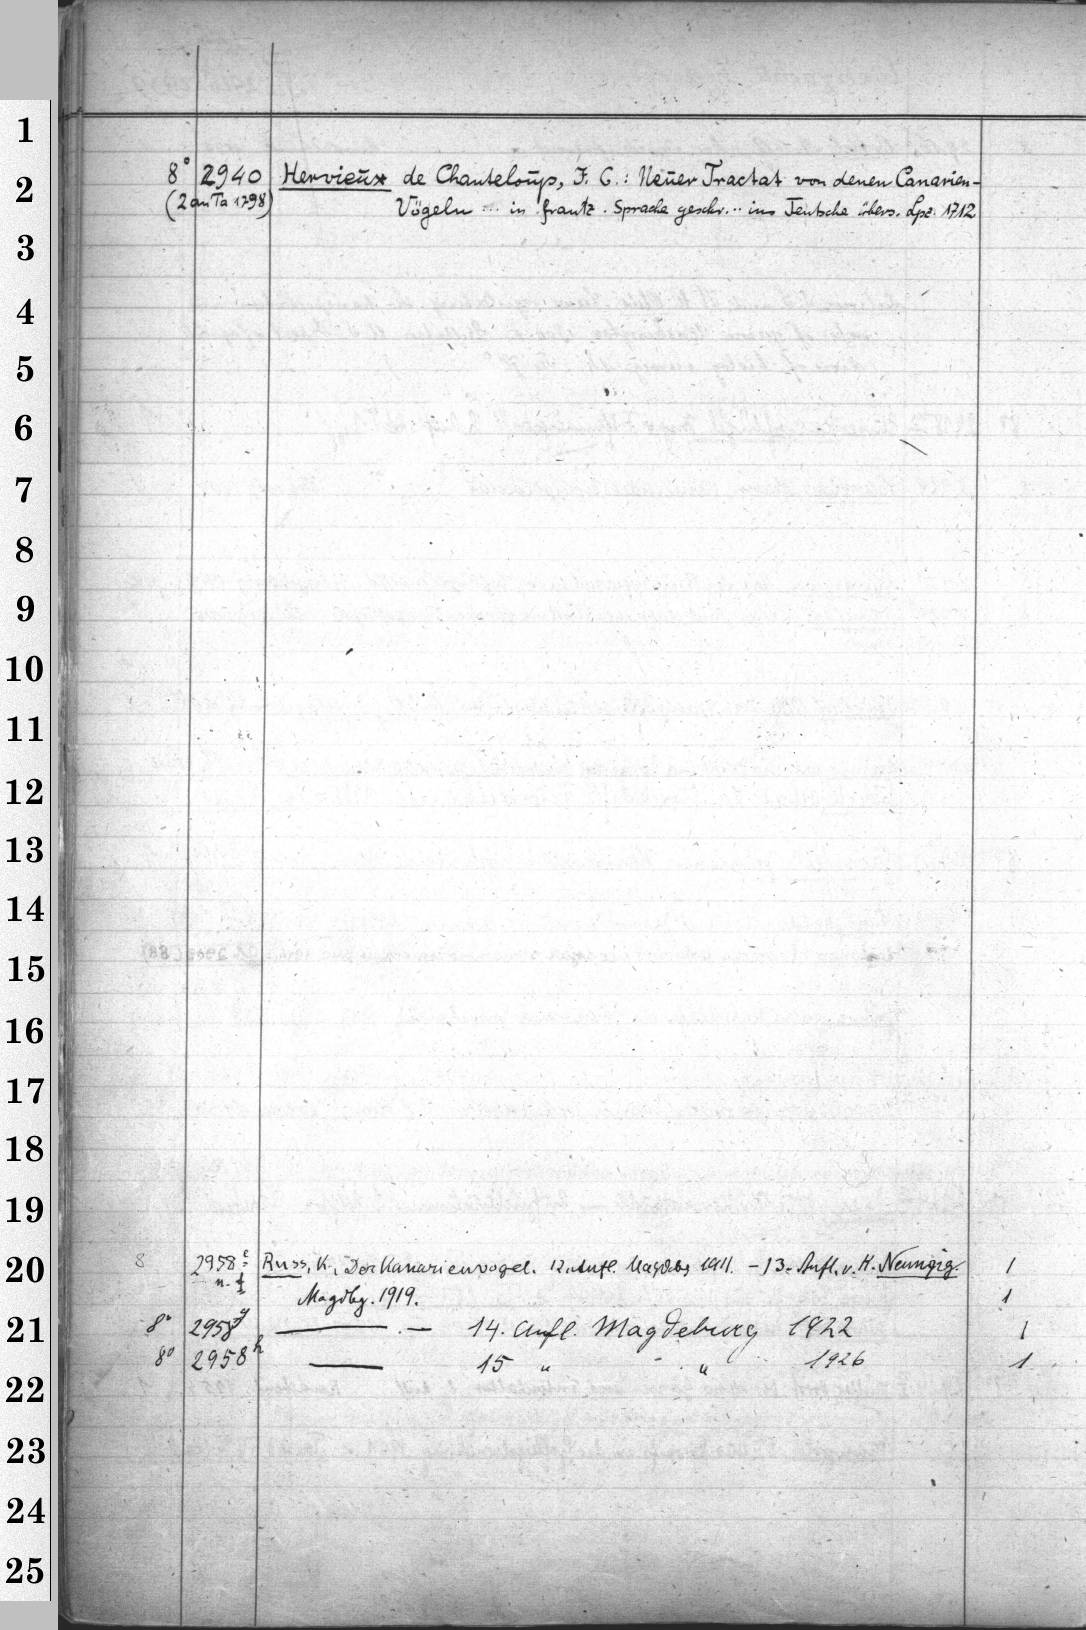 1
2
3
4
5
6
7
8
9
10
11
12
13
14
15
16
17
18
19
20
21
22
23
24
25
8° 2940 Hervieux de Chanteloup, F. C.: Neuer Tractat von denen Canarien-
(2 an Ta 1798) Vögeln ... in frantz. Sprache geschr. ... ins Teutsche übers. Lpz. 1712
8 2958 e Russ, K., Der Kanarienvogel. 12. Aufl. Magdbg 1911. – 13. Aufl. v. K. Neunzig 1
u. f Magdbg. 1919. 1
8° 2958 g — . — 14. Aufl. Magdeburg 1922 1
8° 2958 h — 15 " - " 1926 1